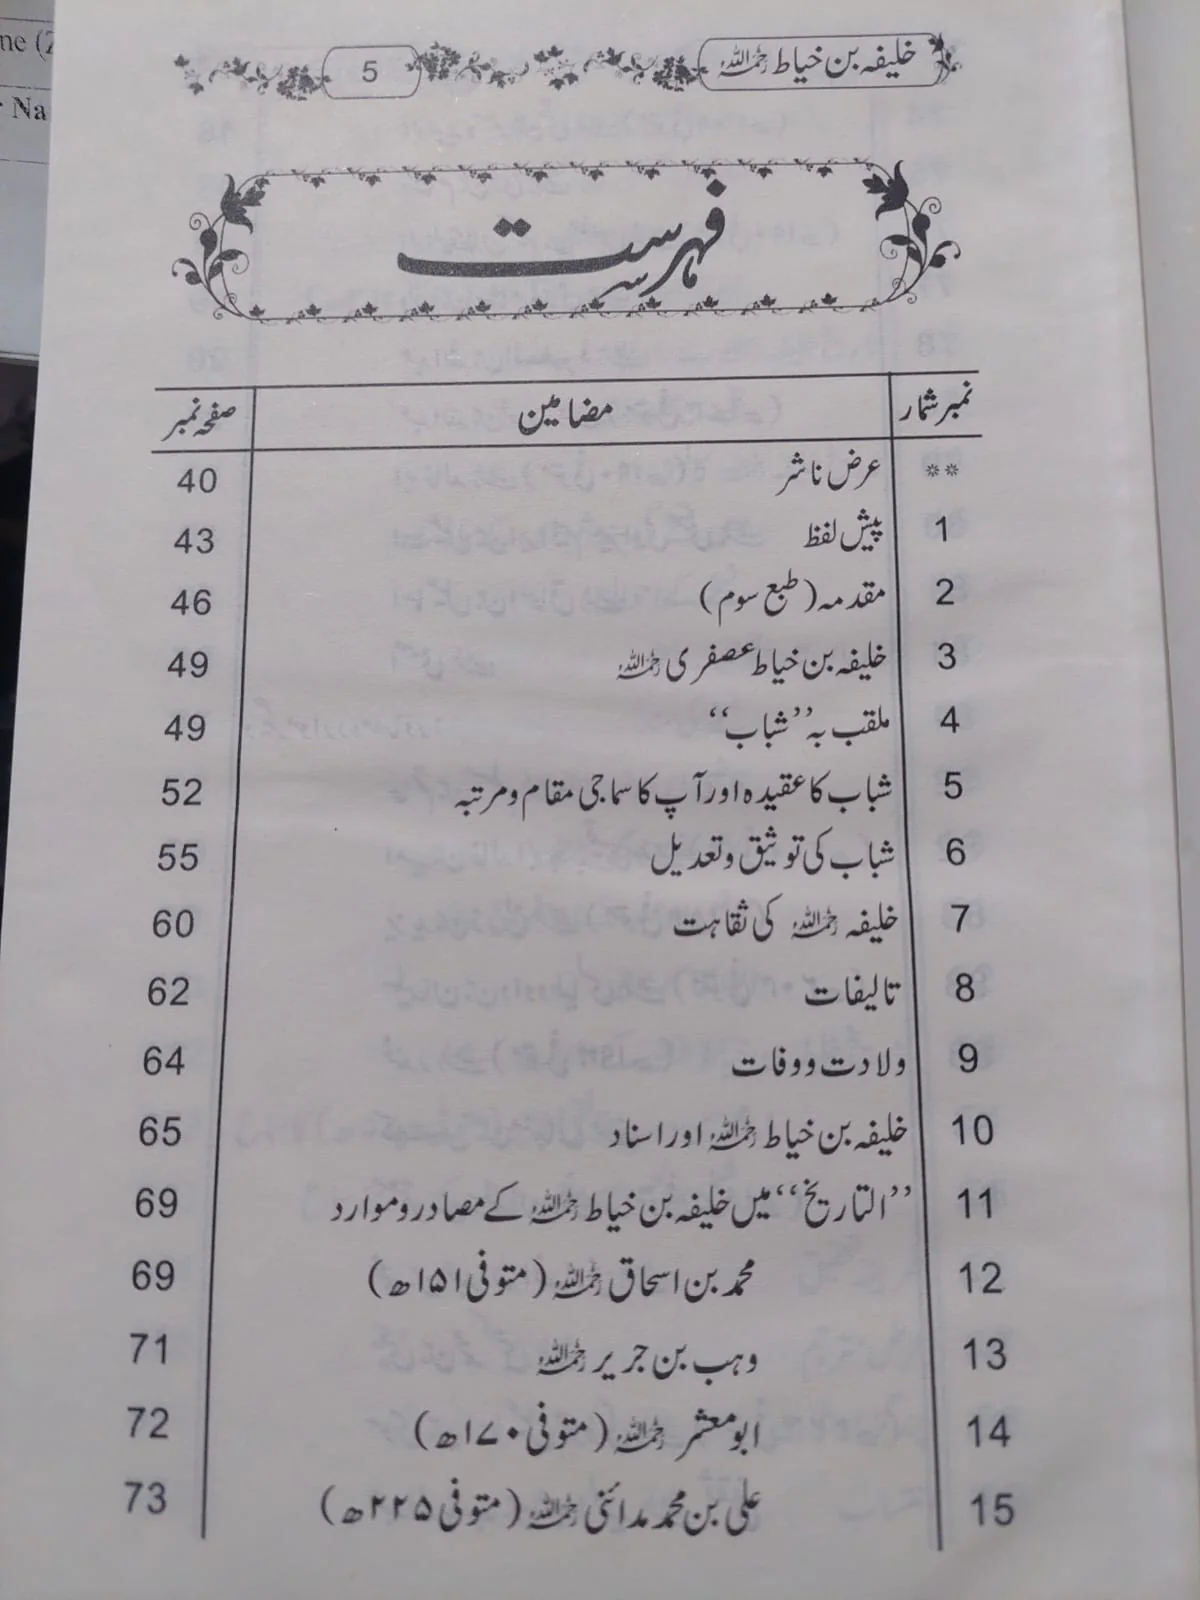 ne (2
r Na
خلیفہ بن خیاط رحمہ اللہ 5
فہرست
نمبر شمار مضامین صفحہ نمبر
** عرض ناشر 40
1 پیش لفظ 43
2 مقدمہ (طبع سوم) 46
3 خلیفہ بن خیاط عصفری رحمہ اللہ 49
4 ملقب بہ ’’شباب‘‘ 49
5 شباب کا عقیدہ اور آپ کا سماجی مقام و مرتبہ 52
6 شباب کی توثیق و تعدیل 55
7 خلیفہ رحمہ اللہ کی ثقاہت 60
8 تالیفات 62
9 ولادت و وفات 64
10 خلیفہ بن خیاط رحمہ اللہ اور اسناد 65
11 ’’التاریخ‘‘ میں خلیفہ بن خیاط رحمہ اللہ کے مصادر و موارد 69
12 محمد بن اسحاق رحمہ اللہ (متوفی ۱۵۱ھ) 69
13 وہب بن جریر رحمہ اللہ 71
14 ابو معشر رحمہ اللہ (متوفی ۱۷۰ھ) 72
15 علی بن محمد مدائنی رحمہ اللہ (متوفی ۲۲۵ھ) 73